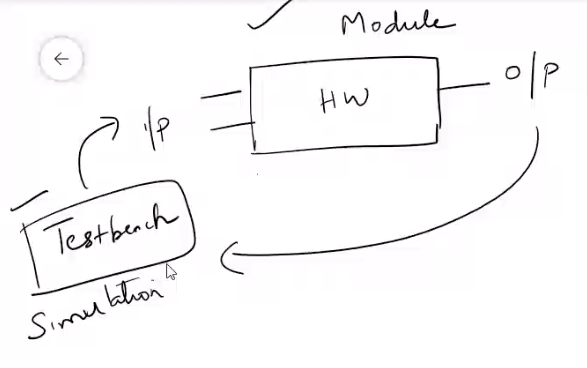 Module
HW
O/P
I/P
Testbench
Simulation